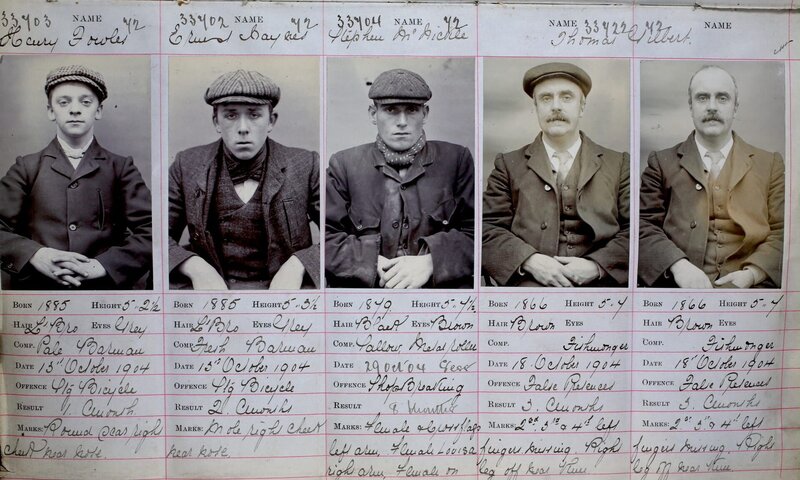 33703 NAME 42
Henry Fowler
BORN 1885 HEIGHT 5-2½
HAIR Lt Bro EYES Grey
COMP. Pale Barman
DATE 15th October 1904
OFFENCE Stg Bicycle
RESULT 1. Cmonth
MARKS: Round scar right
cheek near nose.
33702 NAME 42
Ernest Haynes
BORN 1885 HEIGHT 5-3½
HAIR Lt Bro EYES Grey
COMP. Fresh Barman
DATE 15th October 1904
OFFENCE Stg Bicycle
RESULT 2. Cmonths
MARKS: Mole right cheek
near nose.
33704 NAME 42
Stephen McNickle
BORN 1849 HEIGHT 5-4½
HAIR Black EYES Brown
COMP. Sallow Metal Roller
DATE 29 Oct 04
OFFENCE Shop Breaking
RESULT 8 months
MARKS: Female & Cross flags
left arm, Female Louisa
right arm, Female on
NAME 33722 42 NAME
Thomas Gilbert.
BORN 1866 HEIGHT 5-4
HAIR Brown EYES
COMP. Fishmonger
DATE 18 October 1904
OFFENCE False Pretences
RESULT 3. Cmonths
MARKS: 2nd 3rd & 4th left
fingers missing. Right
leg off near knee.
BORN 1866 HEIGHT 5-4
HAIR Brown EYES
COMP. Fishmonger
DATE 18th October 1904
OFFENCE False Pretences
RESULT 3. Cmonths
MARKS: 2nd 3 & 4th left
fingers missing. Right
leg off near knee.